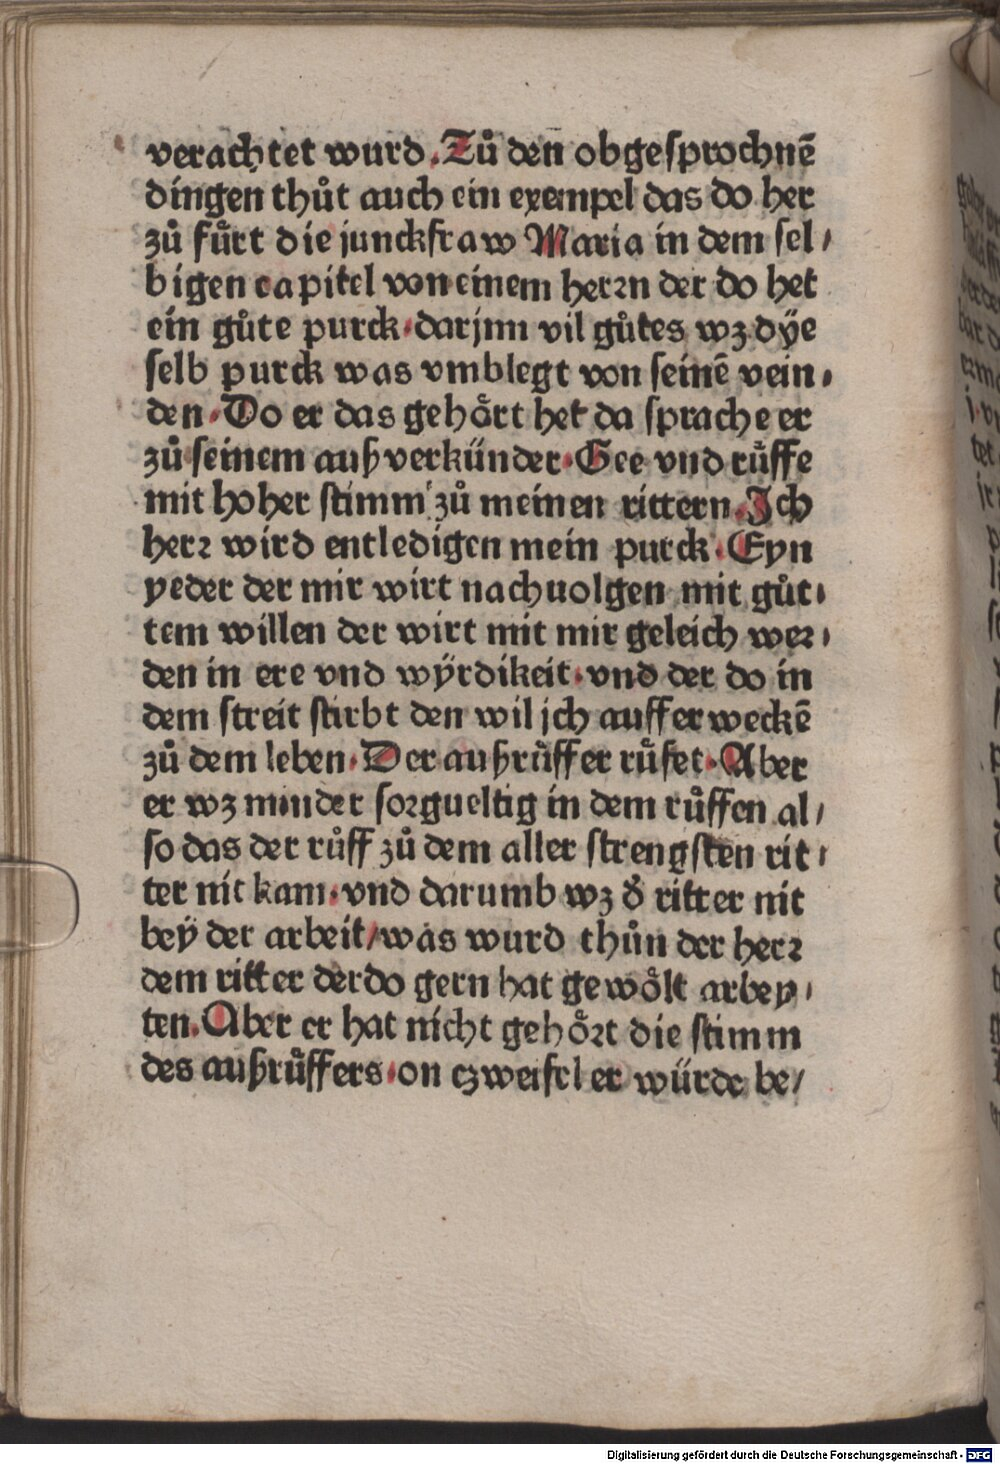 verachtet wurd. Zuͦ den obgesprochnē
dingen thuͦt auch ein exempel das do her
zuͦ fuͤrt die junckfraw Maria in dem sel⸗
bigen capitel von einem herꝛn der do het
ein guͦte purck. darjnn vil guͦtes wz dÿe
selb purck was vmblegt von seinē vein⸗
den. Do er das gehoͤrt het da sprache er
zuͦ seinem außverkünder. Gee vnd ruͤffe
mit hoher stimm zuͦ meinen rittern. Ich
herꝛ wird entledigen mein purck. Eyn
yeder der mir wirt nachuolgen mit guͦt⸗
tem willen der wirt mit mir geleich weꝛ⸗
den in ere vnd wÿrdikeit. vnd der do in
dem streit stirbt den wil jch aufferweckē
zuͦ dem leben. Der außruͤffer ruͤfet. Aber
er wz minder soꝛgueltig in dem ruͤffen al⸗
so das der ruͦff zuͦ dem aller strengsten rit⸗
ter nit kam. vnd darumb wz d̓ ritter nit
beÿ der arbeit/was wurd thuͦn der herꝛ
dem ritter derdo gern hat gewoͤlt arbey⸗
ten. Aber er hat nicht gehoͤꝛt die stimm
des außruͤffers. on czweifel er würde be⸗
Digitalisierung gefördert durch die Deutsche Forschungsgemeinschaft - DFG